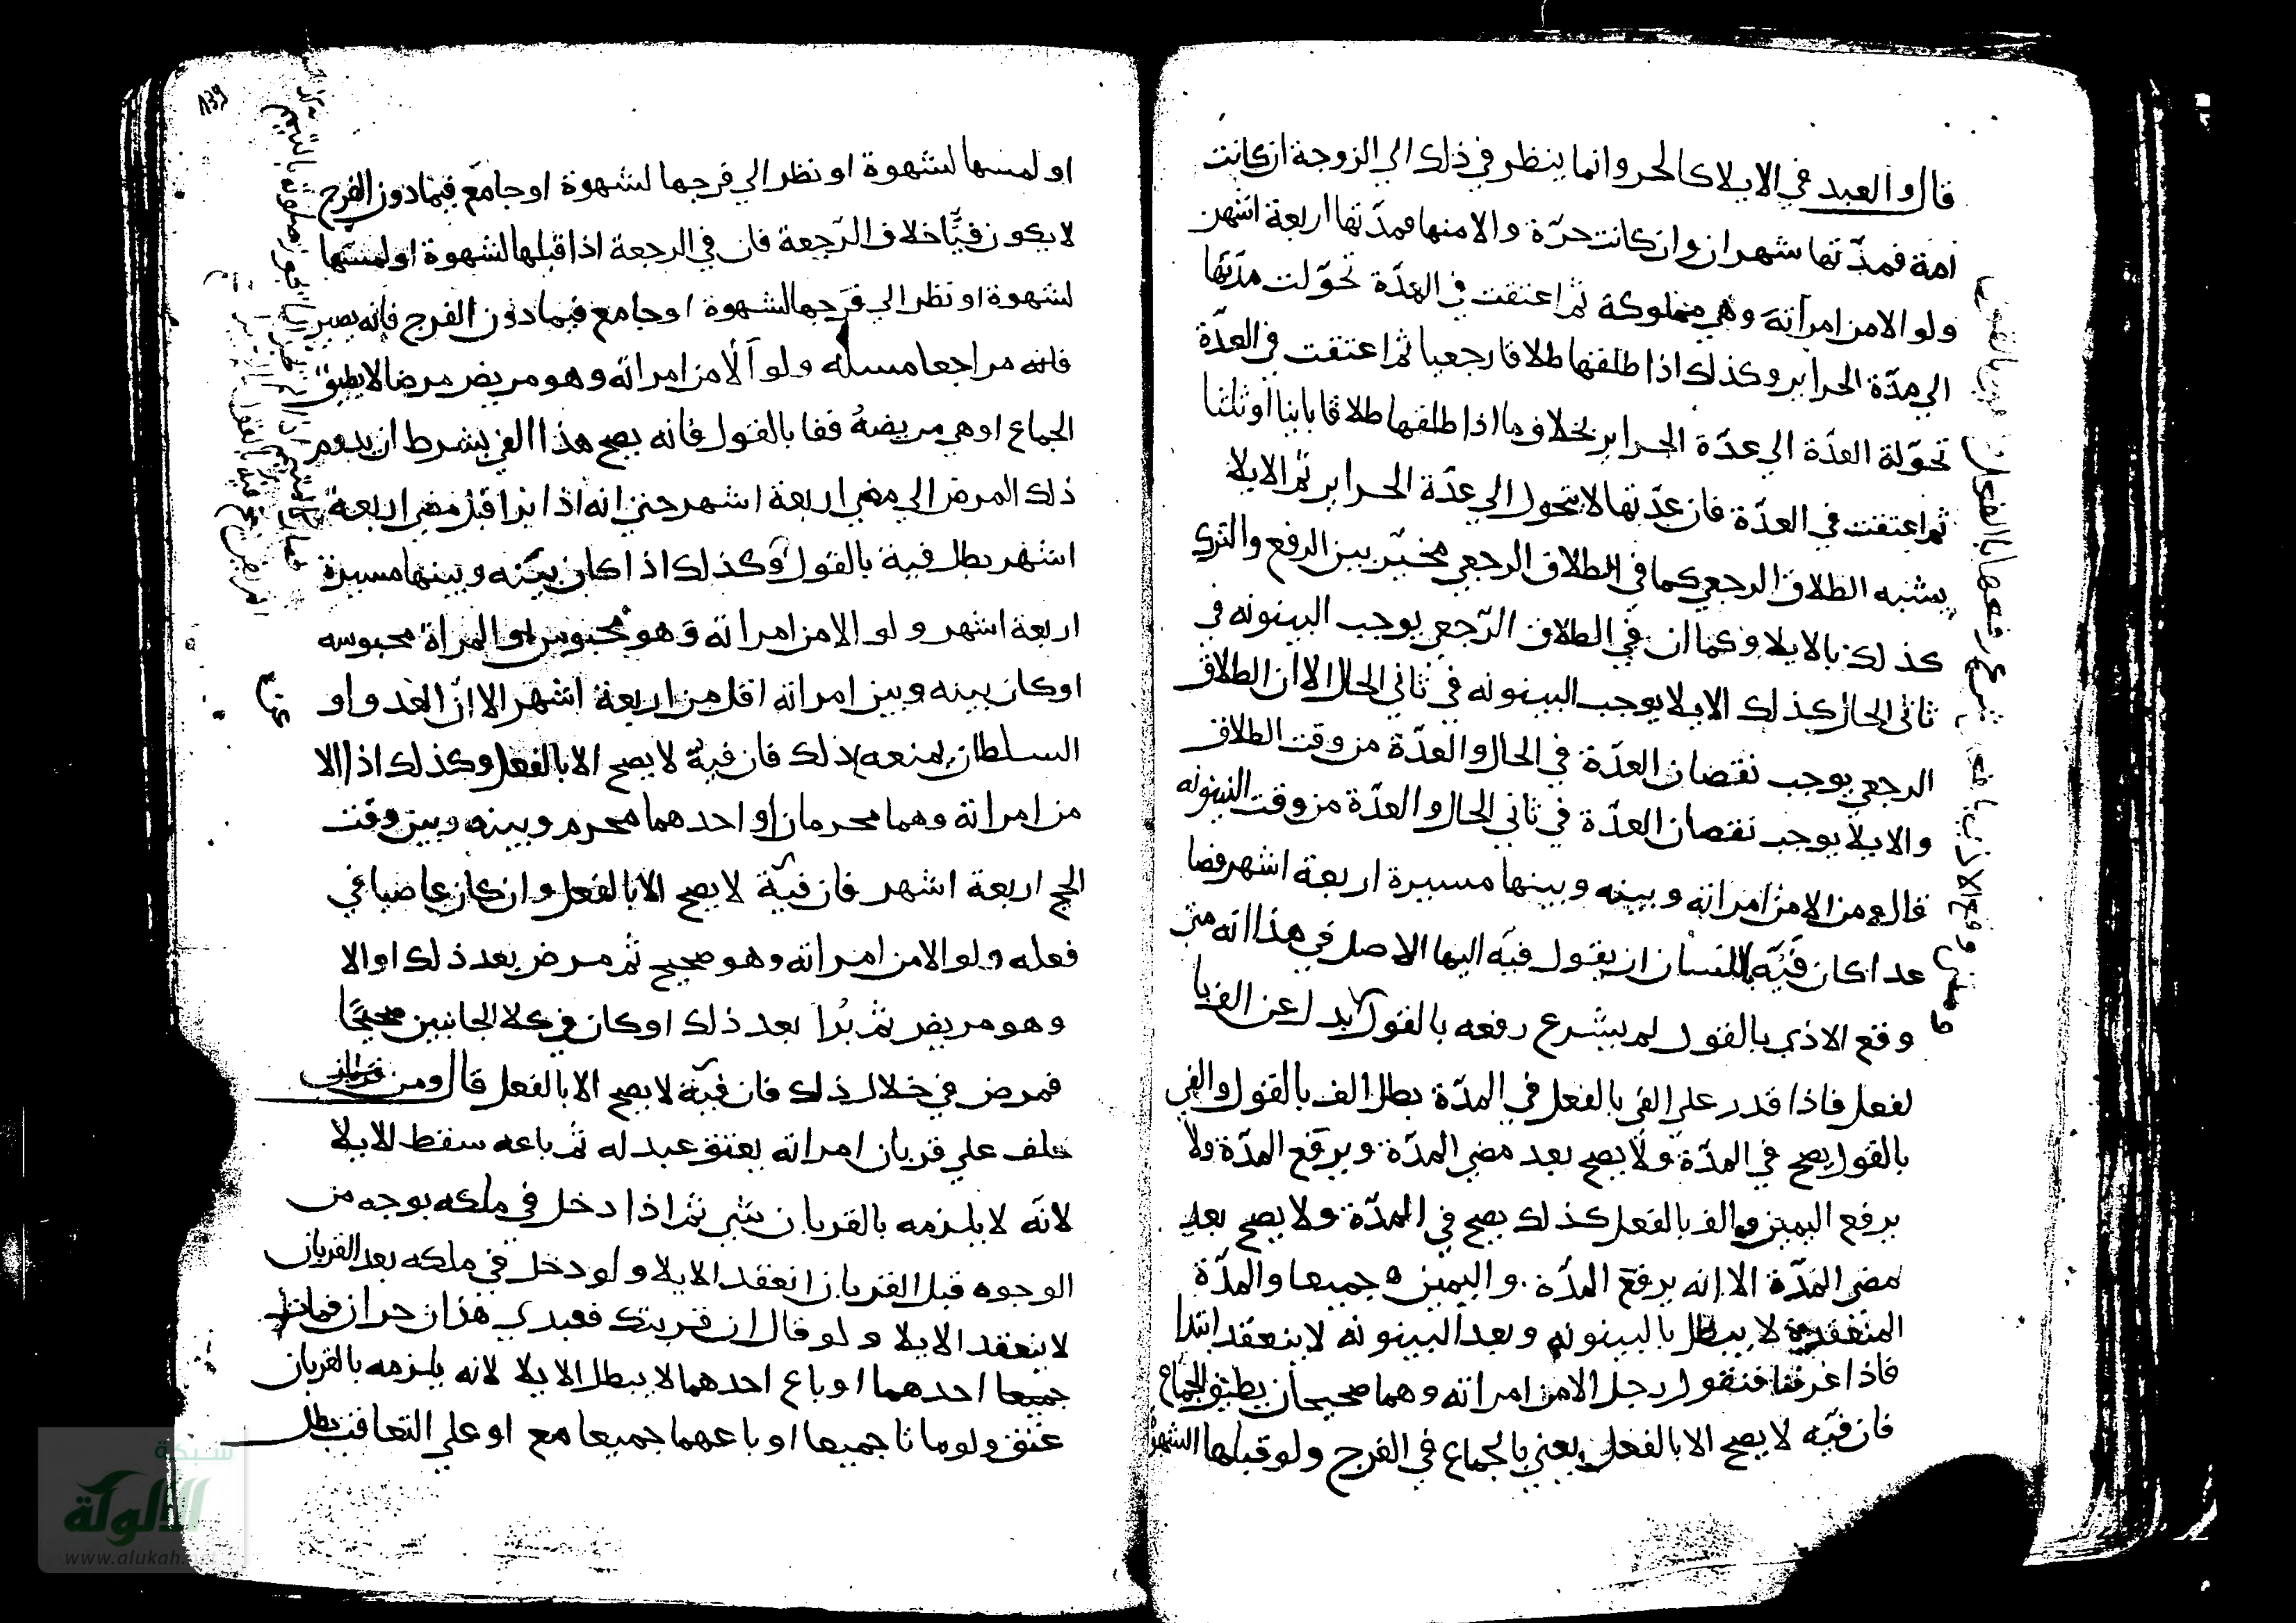 قال والعبد في الايلا كالحر وانما ينظر في ذلك الي الزوجة ان كانت
امة فمدّتها شهران وان كانت حرّة والا منها فمدّتها اربعة اشهر
ولو الا من امراته وهي مملوكة ثم اعتقت في العدّة تحوّلت مدّتها
الي مدّة الحراير وكذلك اذا طلقها طلاقا رجعيا ثم اعتقت في العدّة
تحوّلة العدّة الي عدّة الحراير بخلاف ما اذا طلقها طلاقا باينا او ثلثا
ثم اعتقت في العدّة فان عدّتها لا يتحول الي عدّة الحراير ثم الايلا
يشبه الطلاق الرجعي كما في الطلاق الرجعي مخيّر بين الرفع والترك
كذلك بالايلا وكما ان في الطلاق الرّجعي يوجب البينونه في
ثاني الحال كذلك الايلا يوجب البينونه في ثاني الحال الا ان الطلاق
الرجعي يوجب نقصان العدّة في الحال والعدّة من وقت الطلاق
والايلا يوجب نقصان العدّة في ثاني الحال والعدّة من وقت البينونه
قال ومن الا من امراته وبينه وبينها مسيرة اربعة اشهر فصا
عدا كان فيّه باللسان ان يقول فيّه اليها الاصل في هذا انه متى
وقع الاذي بالقول لم يشرع رفعه بالقول بدل عن الفي با
لفعل فاذا قدر علي الفي بالفعل في المدّة بطل الف بالقول والفي
بالقول يصح في المدّة ولا يصح بعد مضي المدّة ويرفع المدّة ولا
يرفع اليمين والف بالفعل كذلك يصح في المدّة ولا يصح بعد
مضي المدّة الا انه يرفع المدّة واليمين جميعا والمدّة
المنعقدة لا يبطل بالبينونه وبعد البينونه لا ينعقد ابتدا
فاذا عرفنا فنقول رجل الا من امراته وهما صحيحان يطيق الجماع
فان فيّه لا يصح الا بالفعل يعني بالجماع في الفرج ولو قبلها الشهوة
139
او لمسها لشهوة او نظر الي فرجها لشهوة او جامع فيما دون الفرج
لا يكون فيّا خلاف الرّجعة فان في الرجعة اذا قبلها لشهوة او لمسها
لشهوة او نظر الي فرجها لشهوة او جامع فيما دون الفرج فانه يصير
فانه مراجعا مسله ولو الا من امراته وهو مريض مرضا لا يطيق
الجماع او هي مريضة ففا بالقول فانه يصح هذا الفي بشرط ان يدوم
ذلك المرض الي مضي اربعة اشهر حتى انه اذا برا قبل مضي اربعة
اشهر بطل فية بالقول وكذلك اذا كان بينه وبينها مسيرة
اربعة اشهر ولو الا من امراته وهو محبوس او المراة محبوسه
او كان بينه وبين امراته اقل من اربعة اشهر الا ان العدو او
السلطان يمنعه لذلك فان فية لا يصح الا بالفعل وكذلك اذا الا
من امراته وهما محرمان او احدهما محرم وبينه وبين وقت
الحج اربعة اشهر فان فيّة لا يصح الا بالفعل وان كان عاصيا في
فعله ولو الا من امراته وهو صحيح ثم مرض بعد ذلك او الا
وهو مريض ثم برا بعد ذلك او كان في كلا الجانبين صحيحًا
فمرض في خلال ذلك فان فيّة لا يصح الا بالفعل قال ومن
حلف علي قربان امراته بعتق عبد له ثم باعه سقط الايلا
لانّه لا يلزمه بالقربان شي ثم اذا دخل في ملكه بوجه من
الوجوه قبل القربان انعقد الايلا ولو دخل في ملكه بعد القربان
لا ينعقد الايلا ولو قال ان قربتك فعبدي هذان حران فمات
جميعا احدهما او باع احدهما لا يبطل الايلا لانه يلزمه بالقربان
عتق ولو ماتا جميعا او باعهما جميعا مع او علي التعاقب بطل
شبكة
الألوكة
www.alukah.